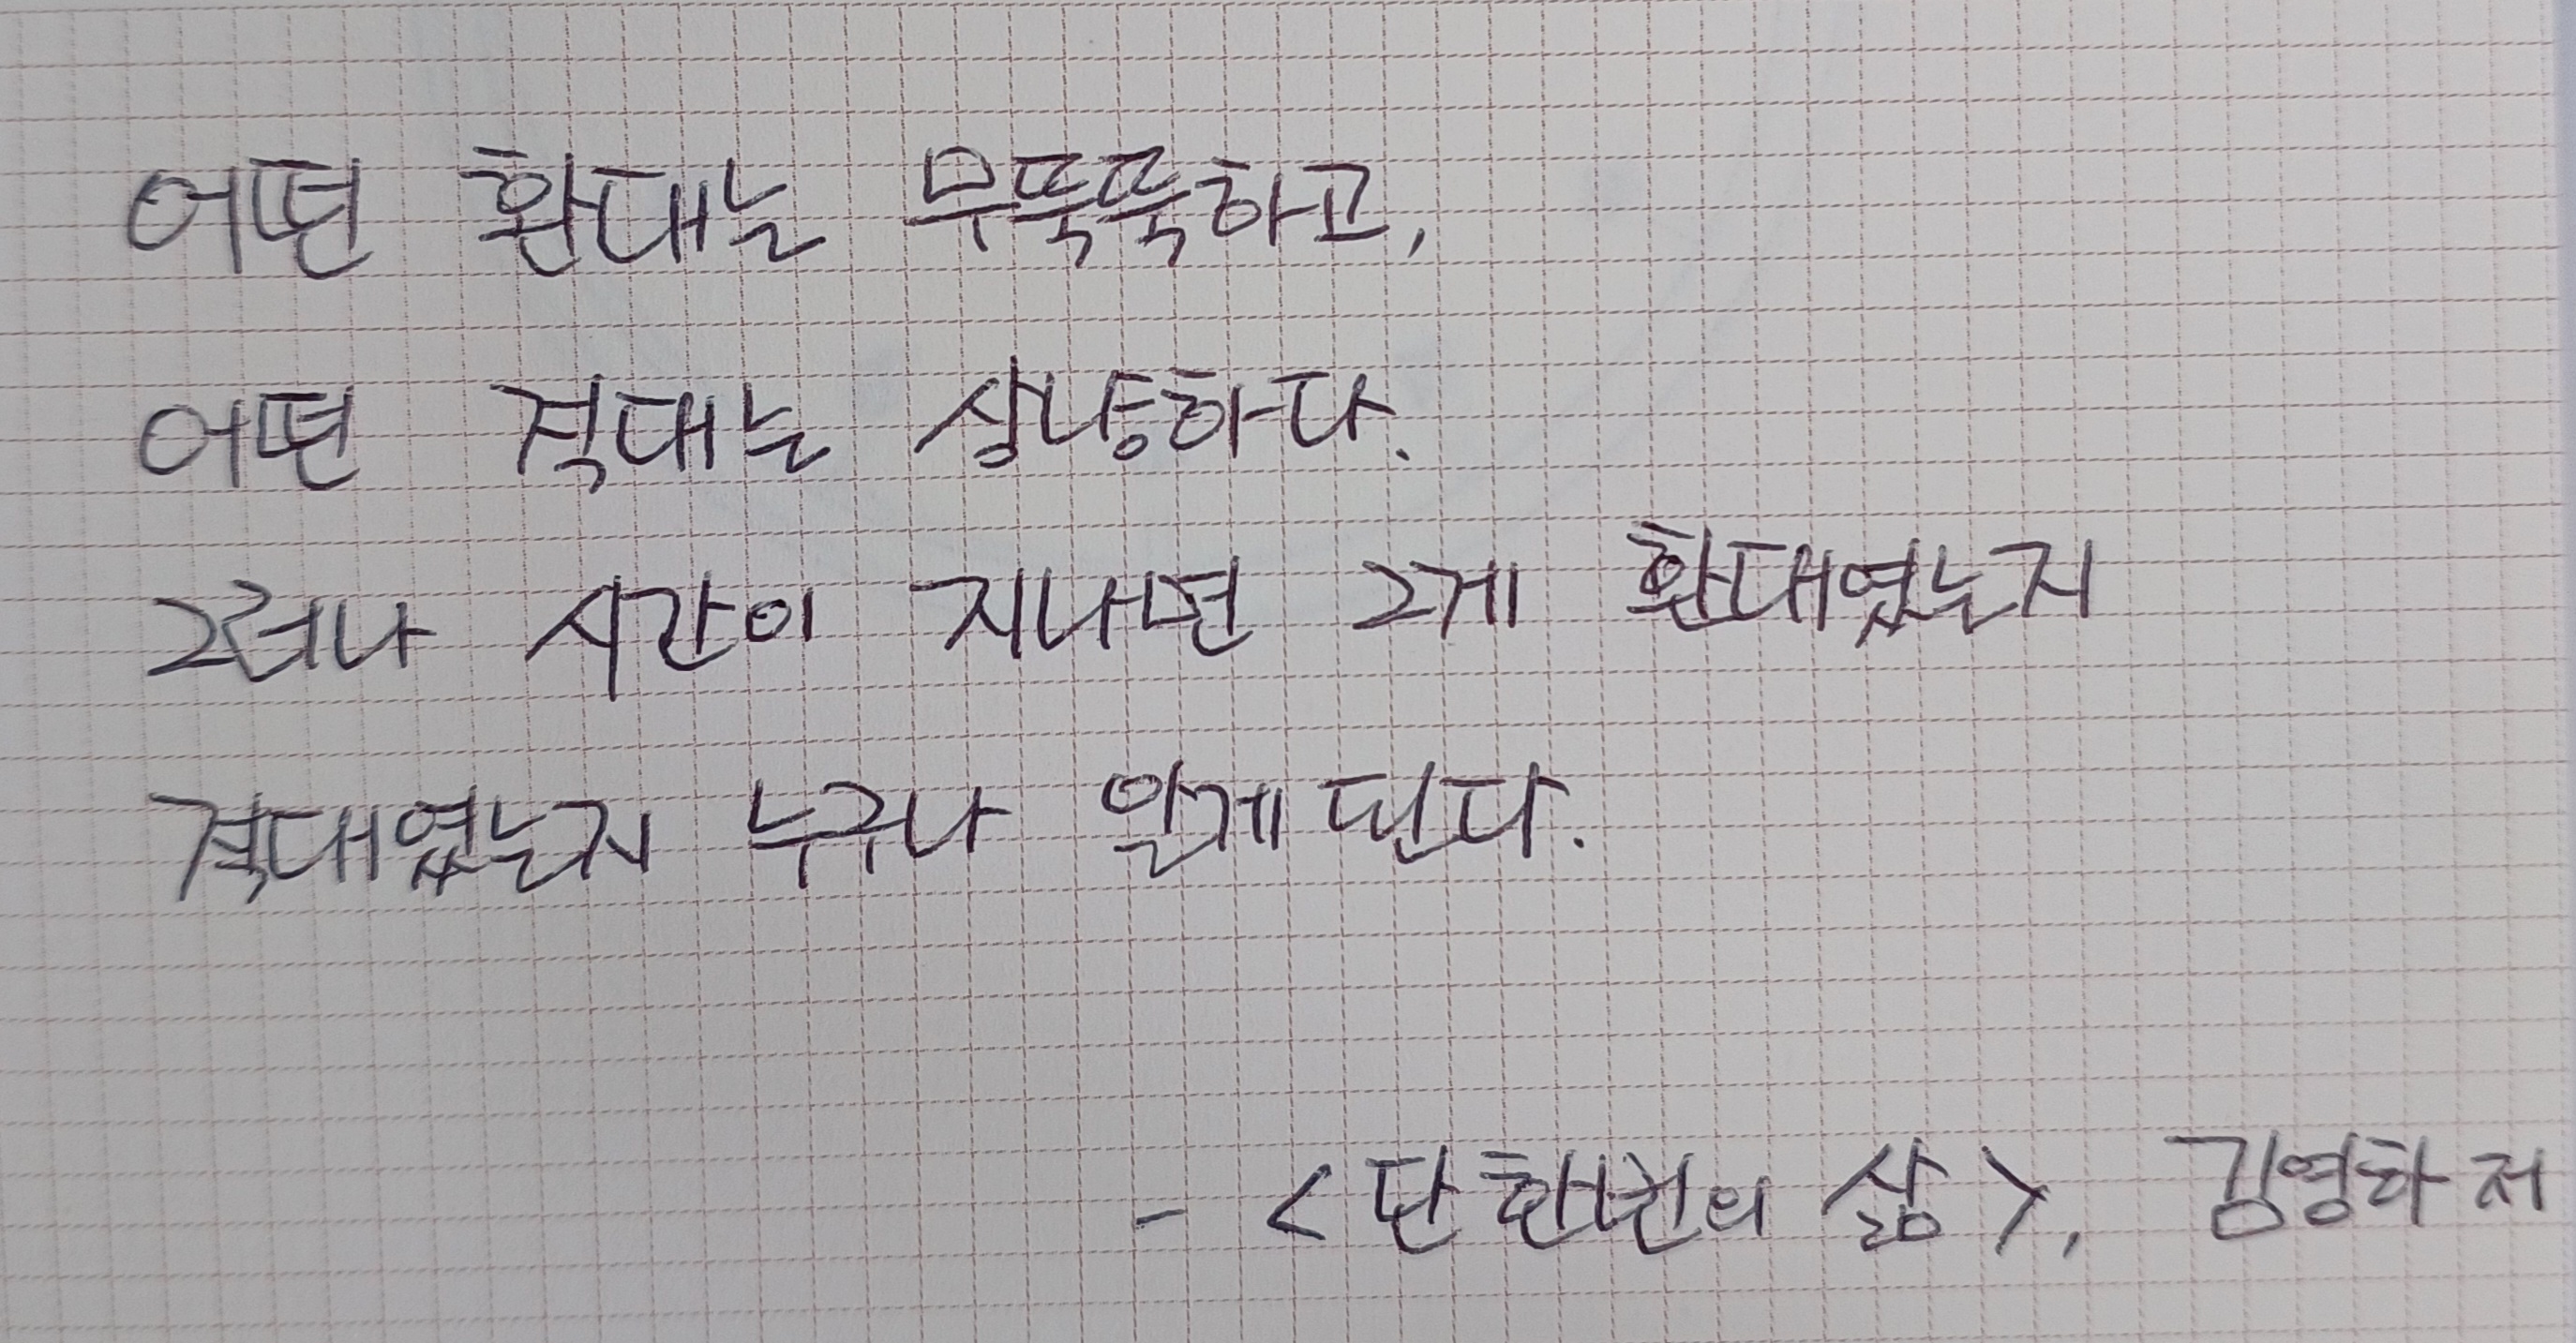 어떤 환대는 무뚝뚝하고,
어떤 적대는 상냥하다.
그러나 시간이 지나면 그게 환대였는지
적대였는지 누구나 알게 된다.
- <단 한번의 삶>, 김영하 저